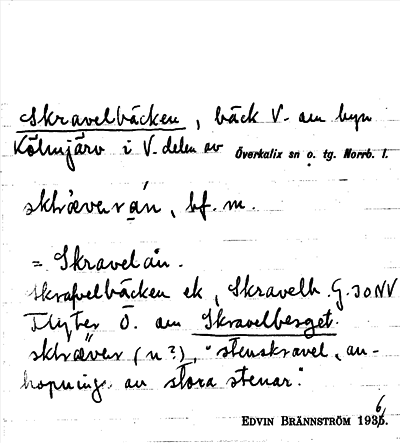 Skravelbäcken, bäck V. om byn
Kölmjärv i V. delen av Överkalix sn o. tg. Norrb. l.
bf. m.
= Skravelån.
Skravelbäcken ek, Skravelb. G. 30 NV
Flyter Ö. om Skravelberget.
(n?), "stenskravel, an-
hopning av stora stenar".
EDVIN BRÄNNSTRÖM 1936.